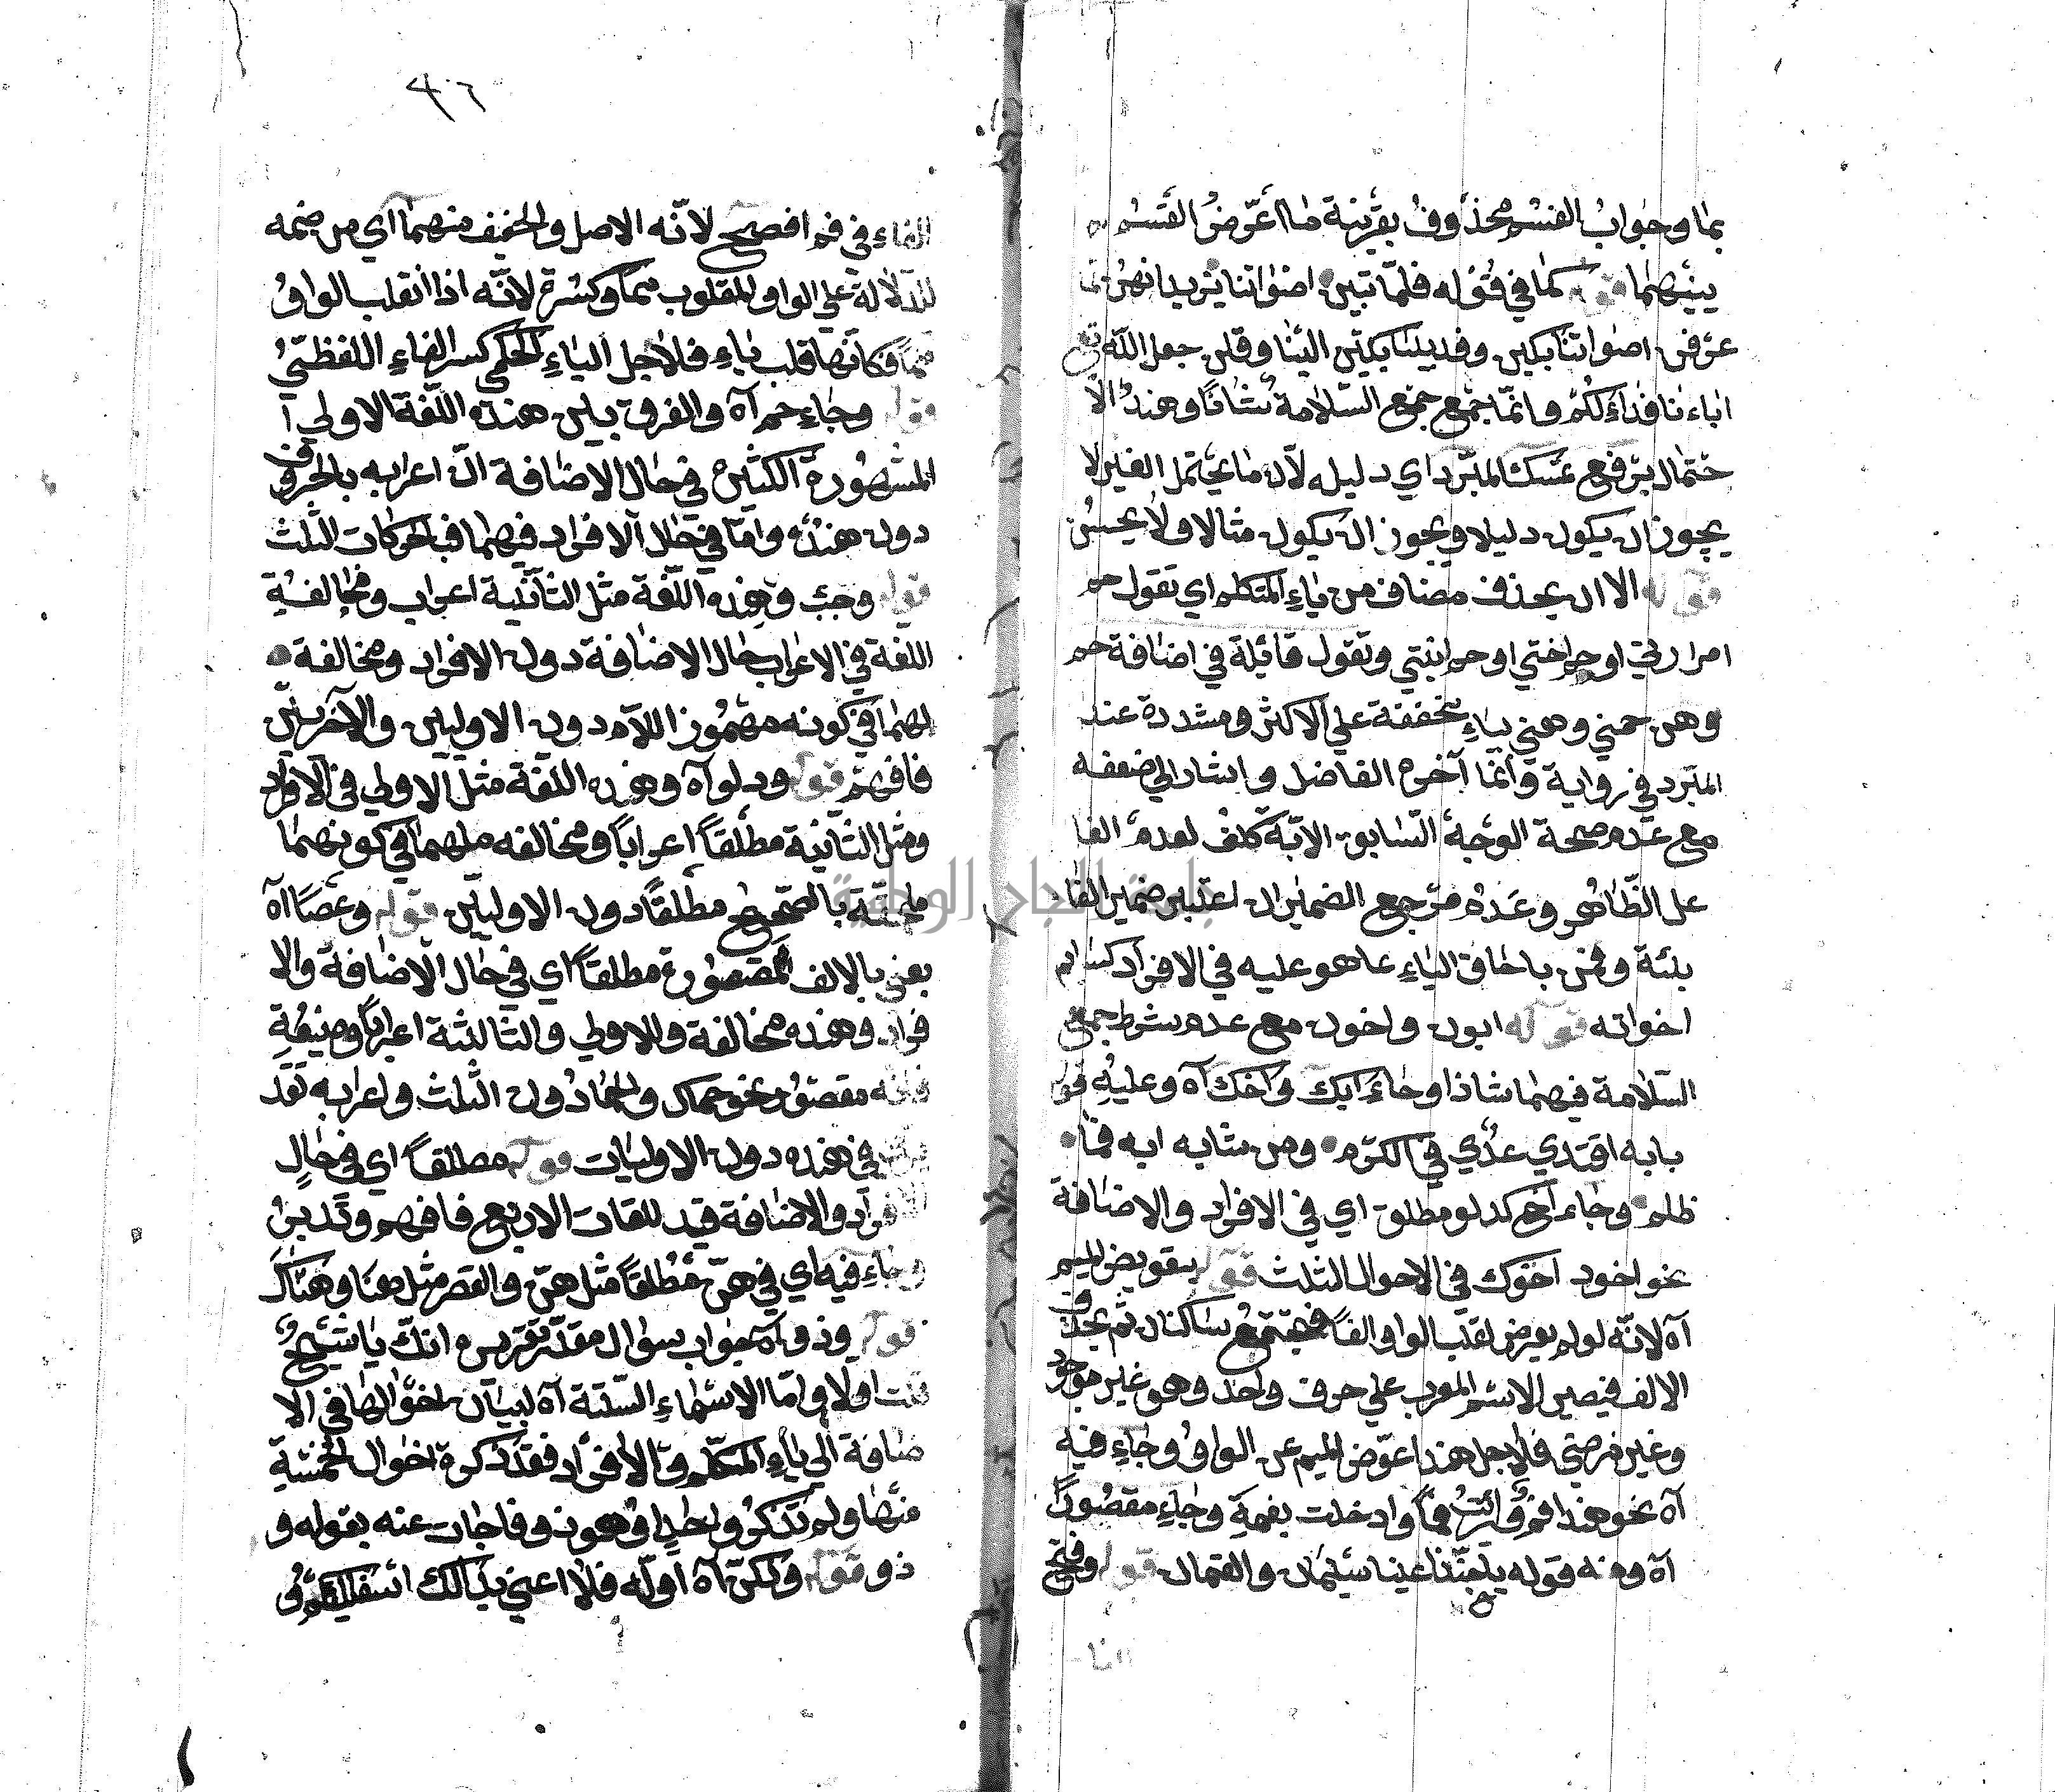 بما وجواب القسم محذوف بقرينة ما اعترض القسم
بينهما قوله كما في قوله فلما تبين اصواتنا يريد انهن لما
عرفن اصواتنا بكين وفديننا بكين الينا وقلن جعل الله تع
اباءنا فداءكم وانما جمع جمع السلامة شاذا وهذا الا
حتمال يرفع تمسك المبرد اي دليله لان ما يحتمل الغير لا
يجوز ان يكون دليلا ويجوز ان يكون مثالا ولا يحسن
قوله الا ان يحذف مضاف من ياء المتكلم اي تقول حم
امراتي او حم اختي او حم ابنتي وتقول قائلة في اضافة حم
وهن حمي وهني بياء مخففة علي الاكثر ومشددة عند
المبرد في رواية وانما آخره الفاضل واشار الي ضعفه
مع عدم صحة الوجه السابق الا بتكلف لعدم الفا
عل الظاهر وعدم مرجع الضمير ان اعتبر ضمير القا
ئلة وهن بالحاق الياء بما هو عليه في الافراد كسائر
اخواته قوله ابون واخون مع عدم شرط جمع
السلامة فيهما شاذا وجاء ابك واخك آه وعليه قوله
بابه اقتدي عدي في الكرم ومن يشابه ابه فما
ظلم وجاء اخ كدلو مطلق اي في الافراد والاضافة
نحو اخو اخوك في الاحوال الثلث قوله بتعويض الميم
آه لانه لو لم يعوض لقلب الواو الفا فيجتمع ساكنان ثم يحذف
الالف فيصير الاسم المعرب علي حرف واحد وهو غير موجود
وغير مرضي فلاجل هذا عوض الميم عن الواو وجاء فيه
آه نحو هذا فم ورأيت فما وادخلت بفمه وجاء مقصورا
آه ومنه قوله عينا سليمان والقمان قوله وفتح
الفا
٤٠٦
الفاء في فم افصح لانه الاصل والخفيف منهما اي من ضمه
للدلالة علي الواو المقلوب ميما وكسرة لانه اذا انقلب الواو
ميما فكانها قلب ياء فلاجل الياء الحكمي كسر الفاء اللفظي
قوله وجاء حم آه والفرق بين هذه اللغة الاولي ا
المشهورة الكثيرة في حال الاضافة ان اعرابه بالحروف
دون هذه واما في حال الافراد فيهما فبالحركات الثلث
قوله وخبء وهذه اللغة مثل الثانية اعراب ومخالفة
اللغة في الاعراب حال الاضافة دون الافراد ومخالفة
لهما في كونه مهموز اللام دون الاوليين والاخريين
فافهم قوله ودلو آه وهذه اللغة مثل الاولي في الافراد
ومثل الثانية مطلقا اعرابا ومخالفه لهما في كونهما
ملحقة بالصحيح مطلقا دون الاوليين قوله وعصا آه
يعني بالالف المقصورة مطلقا اي في حال الاضافة والا
فراد وهذه مخالفة وللاولي والثالثة اعرابا وصيغة
فانه مقصور نحو حماك والحما دون الثلث واعرابه تقد
يري في هذه دون الاوليات قوله مطلقا اي في حال
الافراد والاضافة قيد للغات الاربع فافهم وتدبر
وجاء فيه اي في هن مطلقا مثل هن والقصر مثل هنا وهناك
قوله وذو آه جواب سؤال مقدر تقريره انك يا شيخ
قلت اولا واما الاسماء الستة آه لبيان احوالها في الا
ضافة الي ياء المتكلم والافراد فقد ذكرة احوال الخمسة
منها ولم تذكر واحدا وهو ذو فاجاب عنه بقوله و
ذو قوله ولكن آه اوله فلا اعني بذالك اسفليكم و